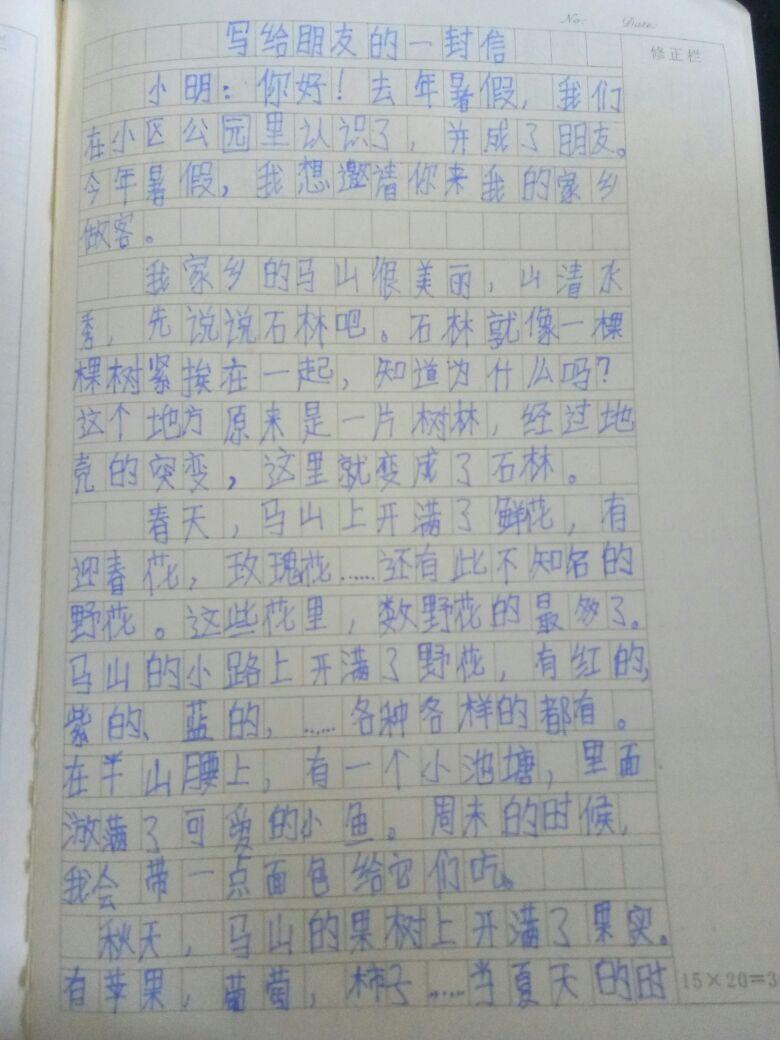 No.      Date
修正栏
写给朋友的一封信
小明：你好！去年暑假，我们
在小区公园里认识了，并成了朋友。
今年暑假，我想邀请你来我的家乡
做客。
我家乡的马山很美丽，山清水
秀，先说说石林吧。石林就像一棵
棵树紧挨在一起，知道为什么吗？
这个地方原来是一片树林，经过地
壳的突变，这里就变成了石林。
春天，马山上开满了鲜花，有
迎春花，玫瑰花……还有此不知名的
野花。这些花里，数野花的最多了。
马山的小路上开满了野花，有红的，
紫的、蓝的，……各种各样的都有。
在半山腰上，有一个小池塘，里面
放满了可爱的小鱼。周末的时候，
我会带一点面包给它们吃。
秋天，马山的果树上开满了果实。
有苹果，葡萄，柿子……当夏天的时
15×20=3